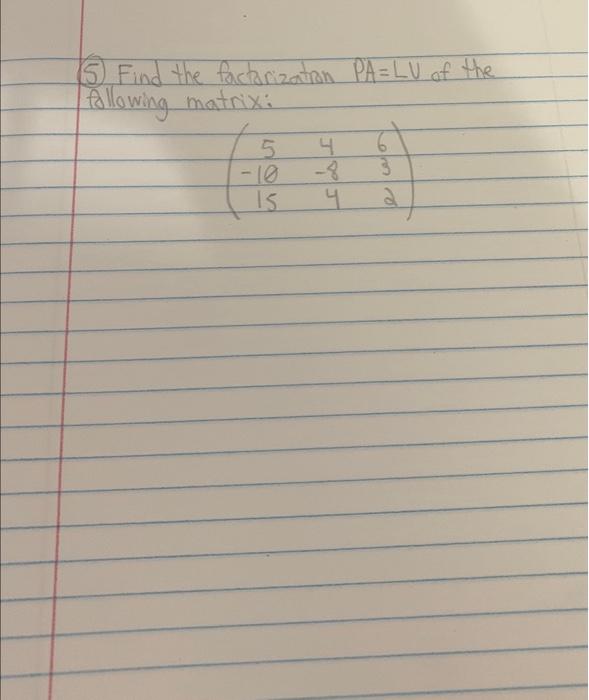 ⑤ Find the factorization PA=LU of the
following matrix:
5 4 6
-10 -8 3
15 4 2